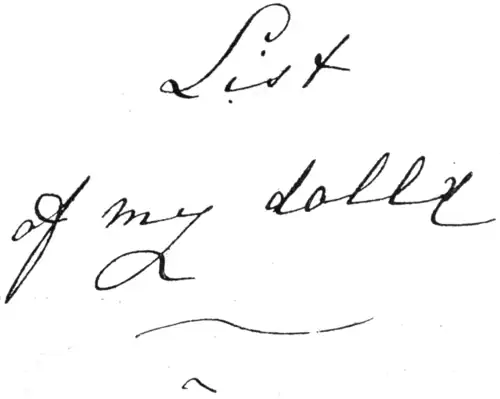 List
of my dolls